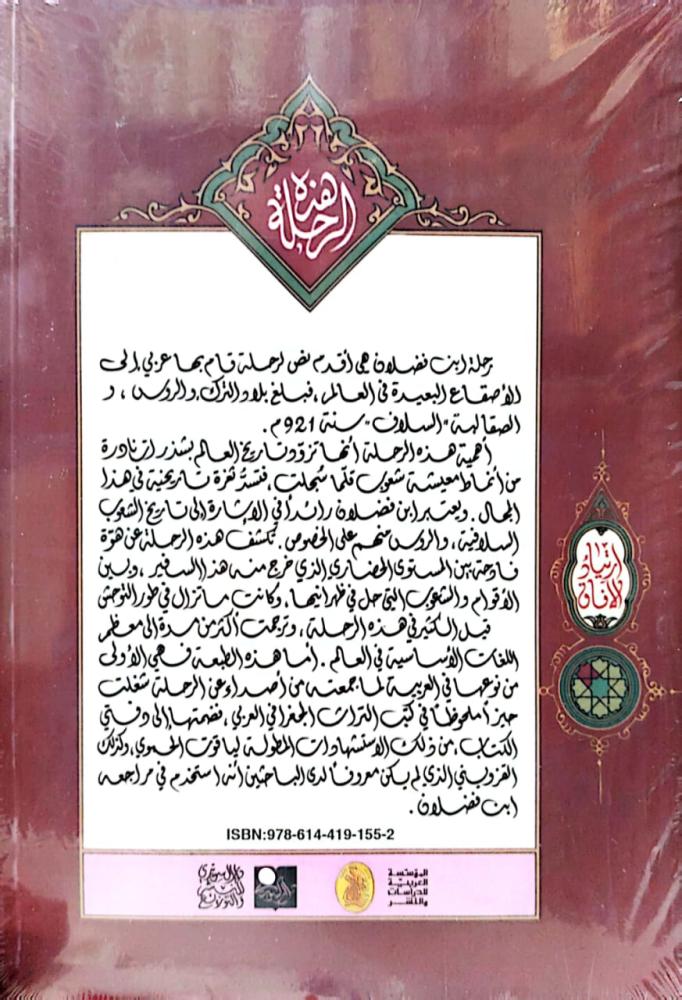 هذه
الرحلة
رحلة ابن فضلان هي أقدم نص لرحلة قام بها عربي إلى
الأصقاع البعيدة في العالم، فبلغ بلاد الترك والروس، و
الصقالبة "السلاف" سنة 921م.
أهمية هذه الرحلة أنها تزود تاريخ العالم بشذرات نادرة
من أنماط معيشة شعوب قلّما سُجلت، فتسدّ ثغرة تاريخية في هذا
المجال. ويعتبر ابن فضلان رائداً في الإشارة إلى تاريخ الشعوب
السلافية، والروس منهم على الخصوص. تكشف هذه الرحلة عن هوّة
فادحة بين المستوى الحضاري الذي خرج منه هذا السفير، وبين
الأقوام والشعوب التي حل في ظهرانيها، وكانت ما تزال في طور التوحش
قيل الكثير في هذه الرحلة، وترجمت أكثر من مرة إلى معظم
اللغات الأساسية في العالم. أما هذه الطبعة فهي الأولى
من نوعها في العربية لما جمعته من أصداء عن الرحلة شغلت
حيزاً ملحوظاً في كتب التراث الجغرافي العربي، فضمتها إلى دفتي
الكتاب، من ذلك الاستشهادات المطولة لياقوت الحموي، وكذلك
القزويني الذي لم يكن معروفاً لدى الباحثين أنه استخدم في مراجعه
ابن فضلان.
ISBN:978-614-419-155-2
ارتياد
الآفاق
المؤسسة
العربية
للدراسات
والنشر
دار السويدي
للنشر
والتوزيع